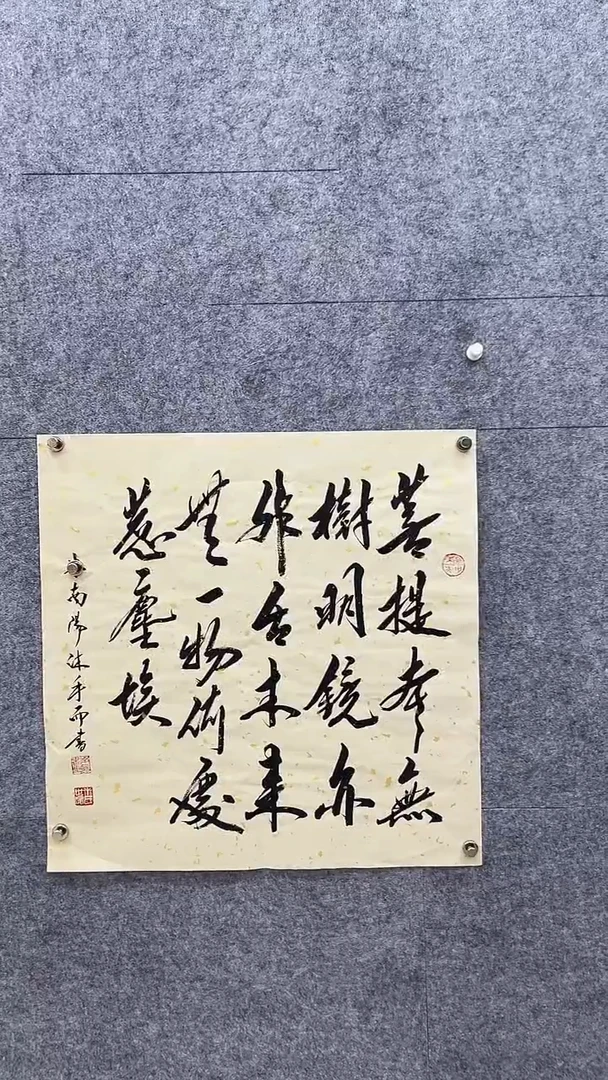 菩提本無
樹明鏡亦
非台本来
無一物何處
惹塵埃
南陽沐手而書